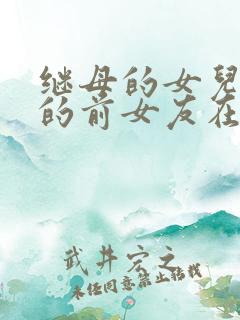 继母的女兒
的前女友在
武井宏之
未经同意禁止转载